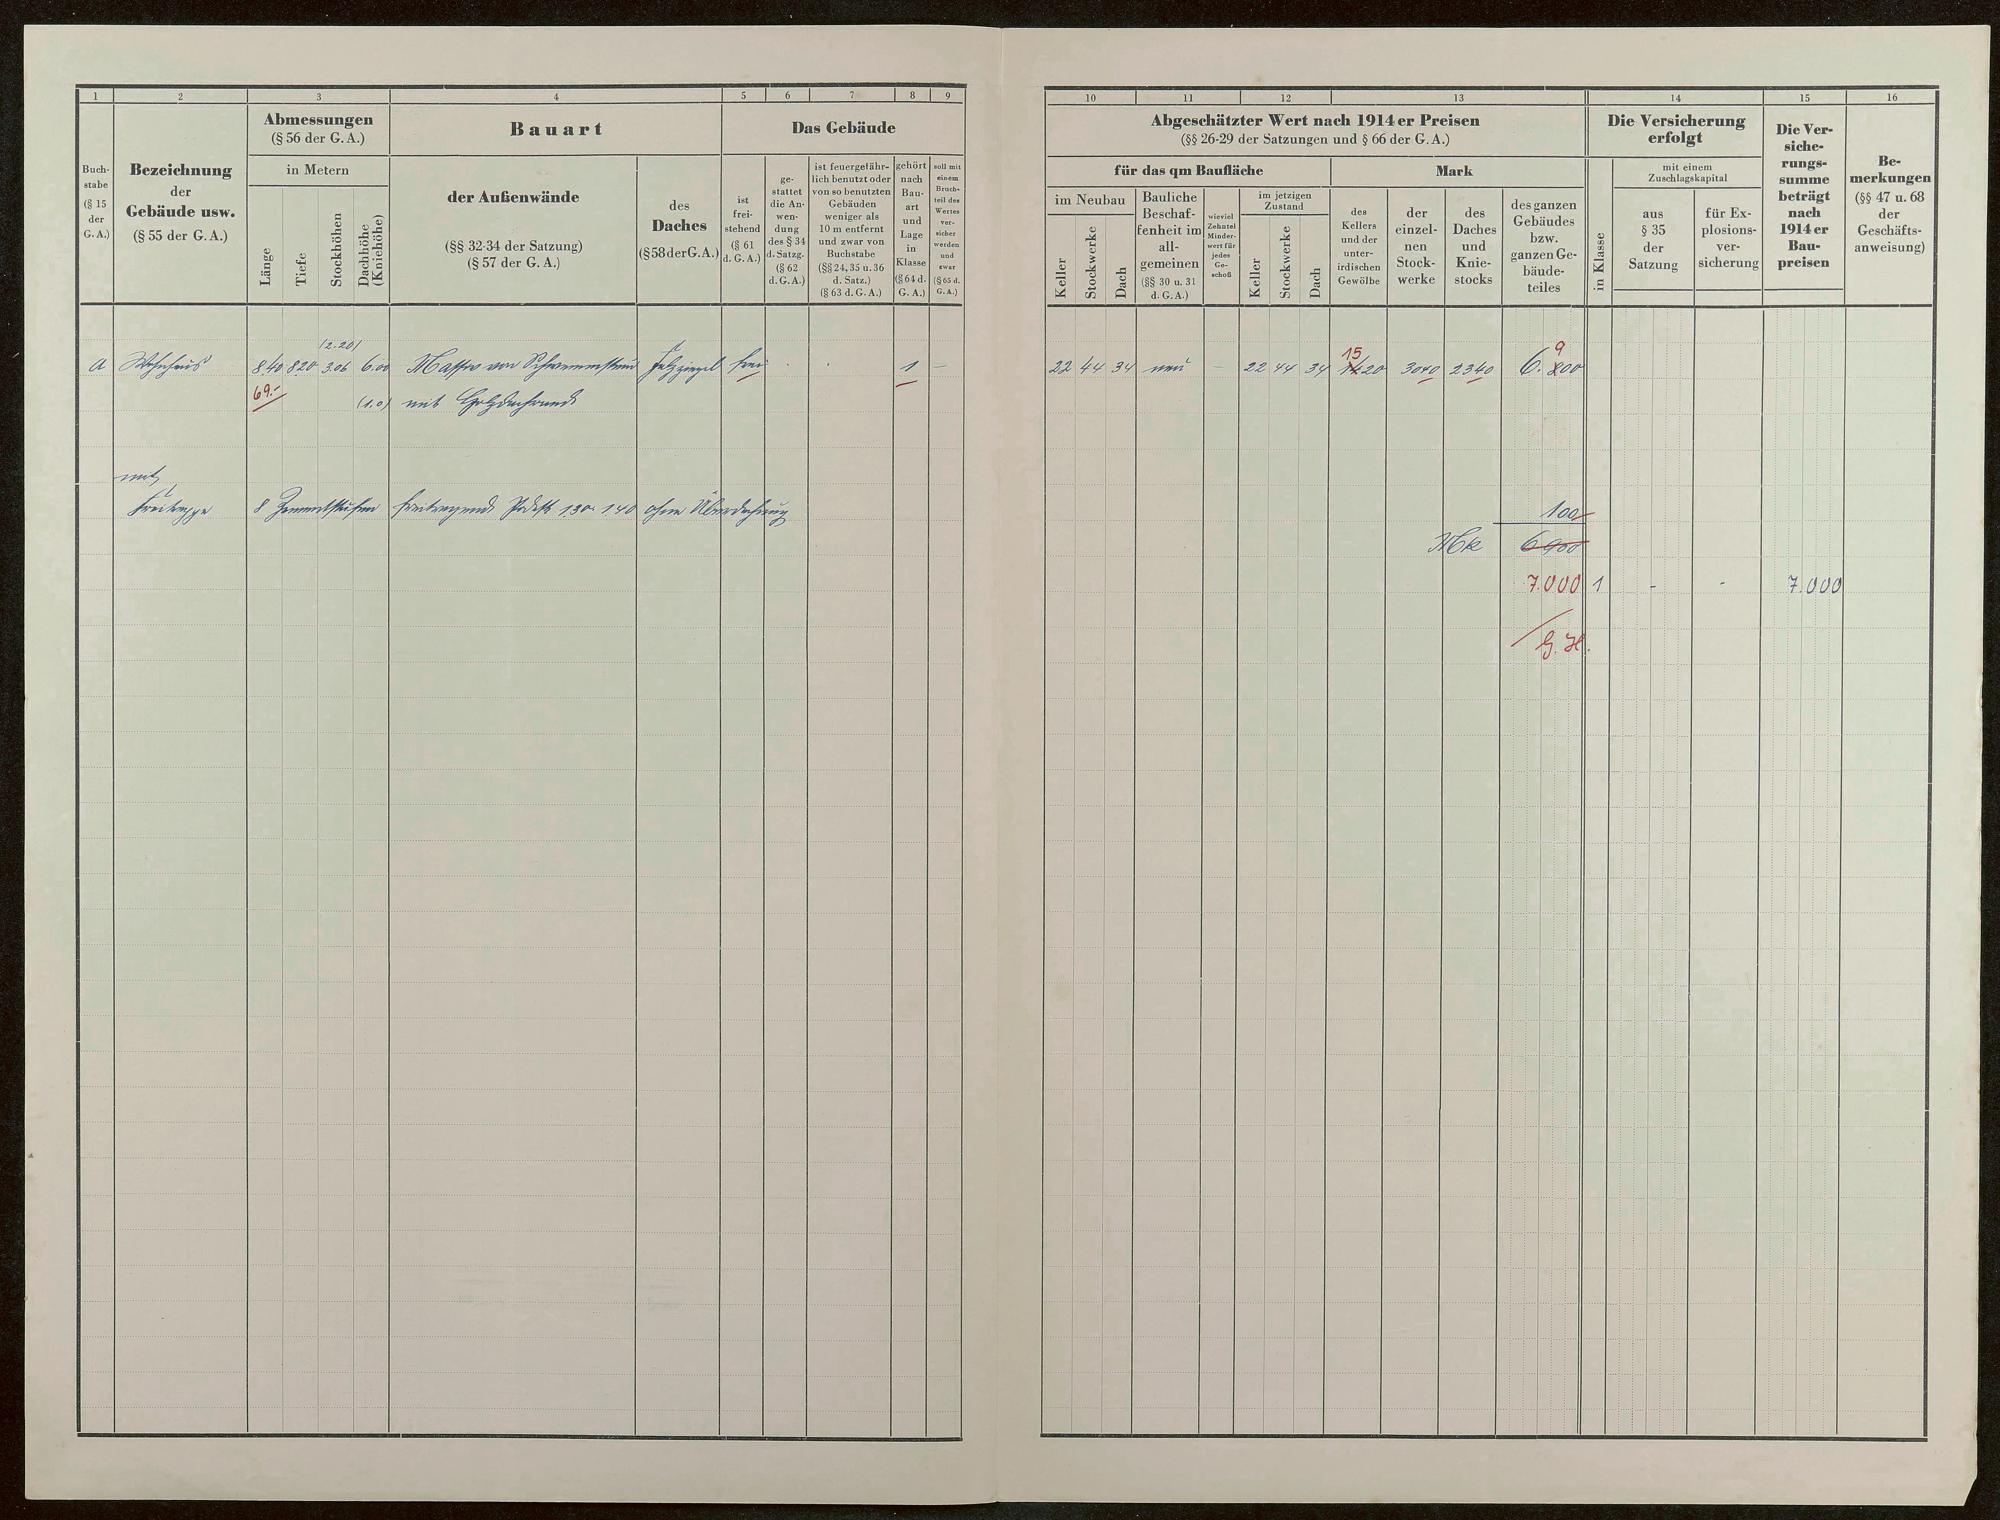 1 2 3 4 5 6 7 8 9
Buch-
stabe
(§ 15
der
G. A.)
Bezeichnung
der
Gebäude usw.
(§ 55 der G. A.)
Abmessungen
(§ 56 der G. A.)
in Metern
Länge
Tiefe
Stockhöhen
Dachhöhe
(Kniehöhe)
Bauart
der Außenwände
(§§ 32-34 der Satzung)
(§ 57 der G. A.)
des
Daches
(§ 58 der G. A.)
Das Gebäude
ist
frei-
stehend
(§ 61
d. G. A.)
ge-
stattet
die An-
wen-
dung
des § 34
d. Satzg.
(§ 62
d. G. A.)
ist feuergefähr-
lich benutzt oder
von so benutzten
Gebäuden
weniger als
10 m entfernt
und zwar von
Buchstabe
(§§ 24, 35 u. 36
d. Satz.)
(§ 63 d. G. A.)
gehört
nach
Bau-
art
und
Lage
in
Klasse
(§ 64 d.
G. A.)
soll mit
einem
Bruch-
teil des
Wertes
ver-
sicher
werden
und
zwar
(§ 65 d.
G. A.)
(2.20)
a Wohnhaus 8.40 8.20 3.06 6.00 Massiv von Schwemmstein Falzziegel frei 1 –
69.- (1.0) mit Holzdachrand
mit
Freitreppe 8 Zementstufen freitragend Podest 1.30 1.40 ohne Überdachung
10 11 12 13 14 15 16
Abgeschätzter Wert nach 1914 er Preisen
(§§ 26-29 der Satzungen und § 66 der G. A.)
für das qm Baufläche
im Neubau
Keller
Stockwerke
Dach
Bauliche
Beschaf-
fenheit im
all-
gemeinen
(§§ 30 u. 31
d. G. A.)
wieviel
Zehntel
Minder-
wert für
jedes
Ge-
schoß
im jetzigen
Zustand
Keller
Stockwerke
Dach
Mark
des
Kellers
und der
unter-
irdischen
Gewölbe
der
einzel-
nen
Stock-
werke
des
Daches
und
Knie-
stocks
des ganzen
Gebäudes
bzw.
ganzen Ge-
bäude-
teiles
Die Versicherung
erfolgt
in Klasse
mit einem
Zuschlagskapital
aus
§ 35
der
Satzung
für Ex-
plosions-
ver-
sicherung
Die Ver-
siche-
rungs-
summe
beträgt
nach
1914 er
Bau-
preisen
Be-
merkungen
(§§ 47 u. 68
der
Geschäfts-
anweisung)
15 9
22 44 34 neu – 22 44 34 1420 3040 2340 6.800
100
Mk 6900
7.000 1 - - 7.000
G. H.